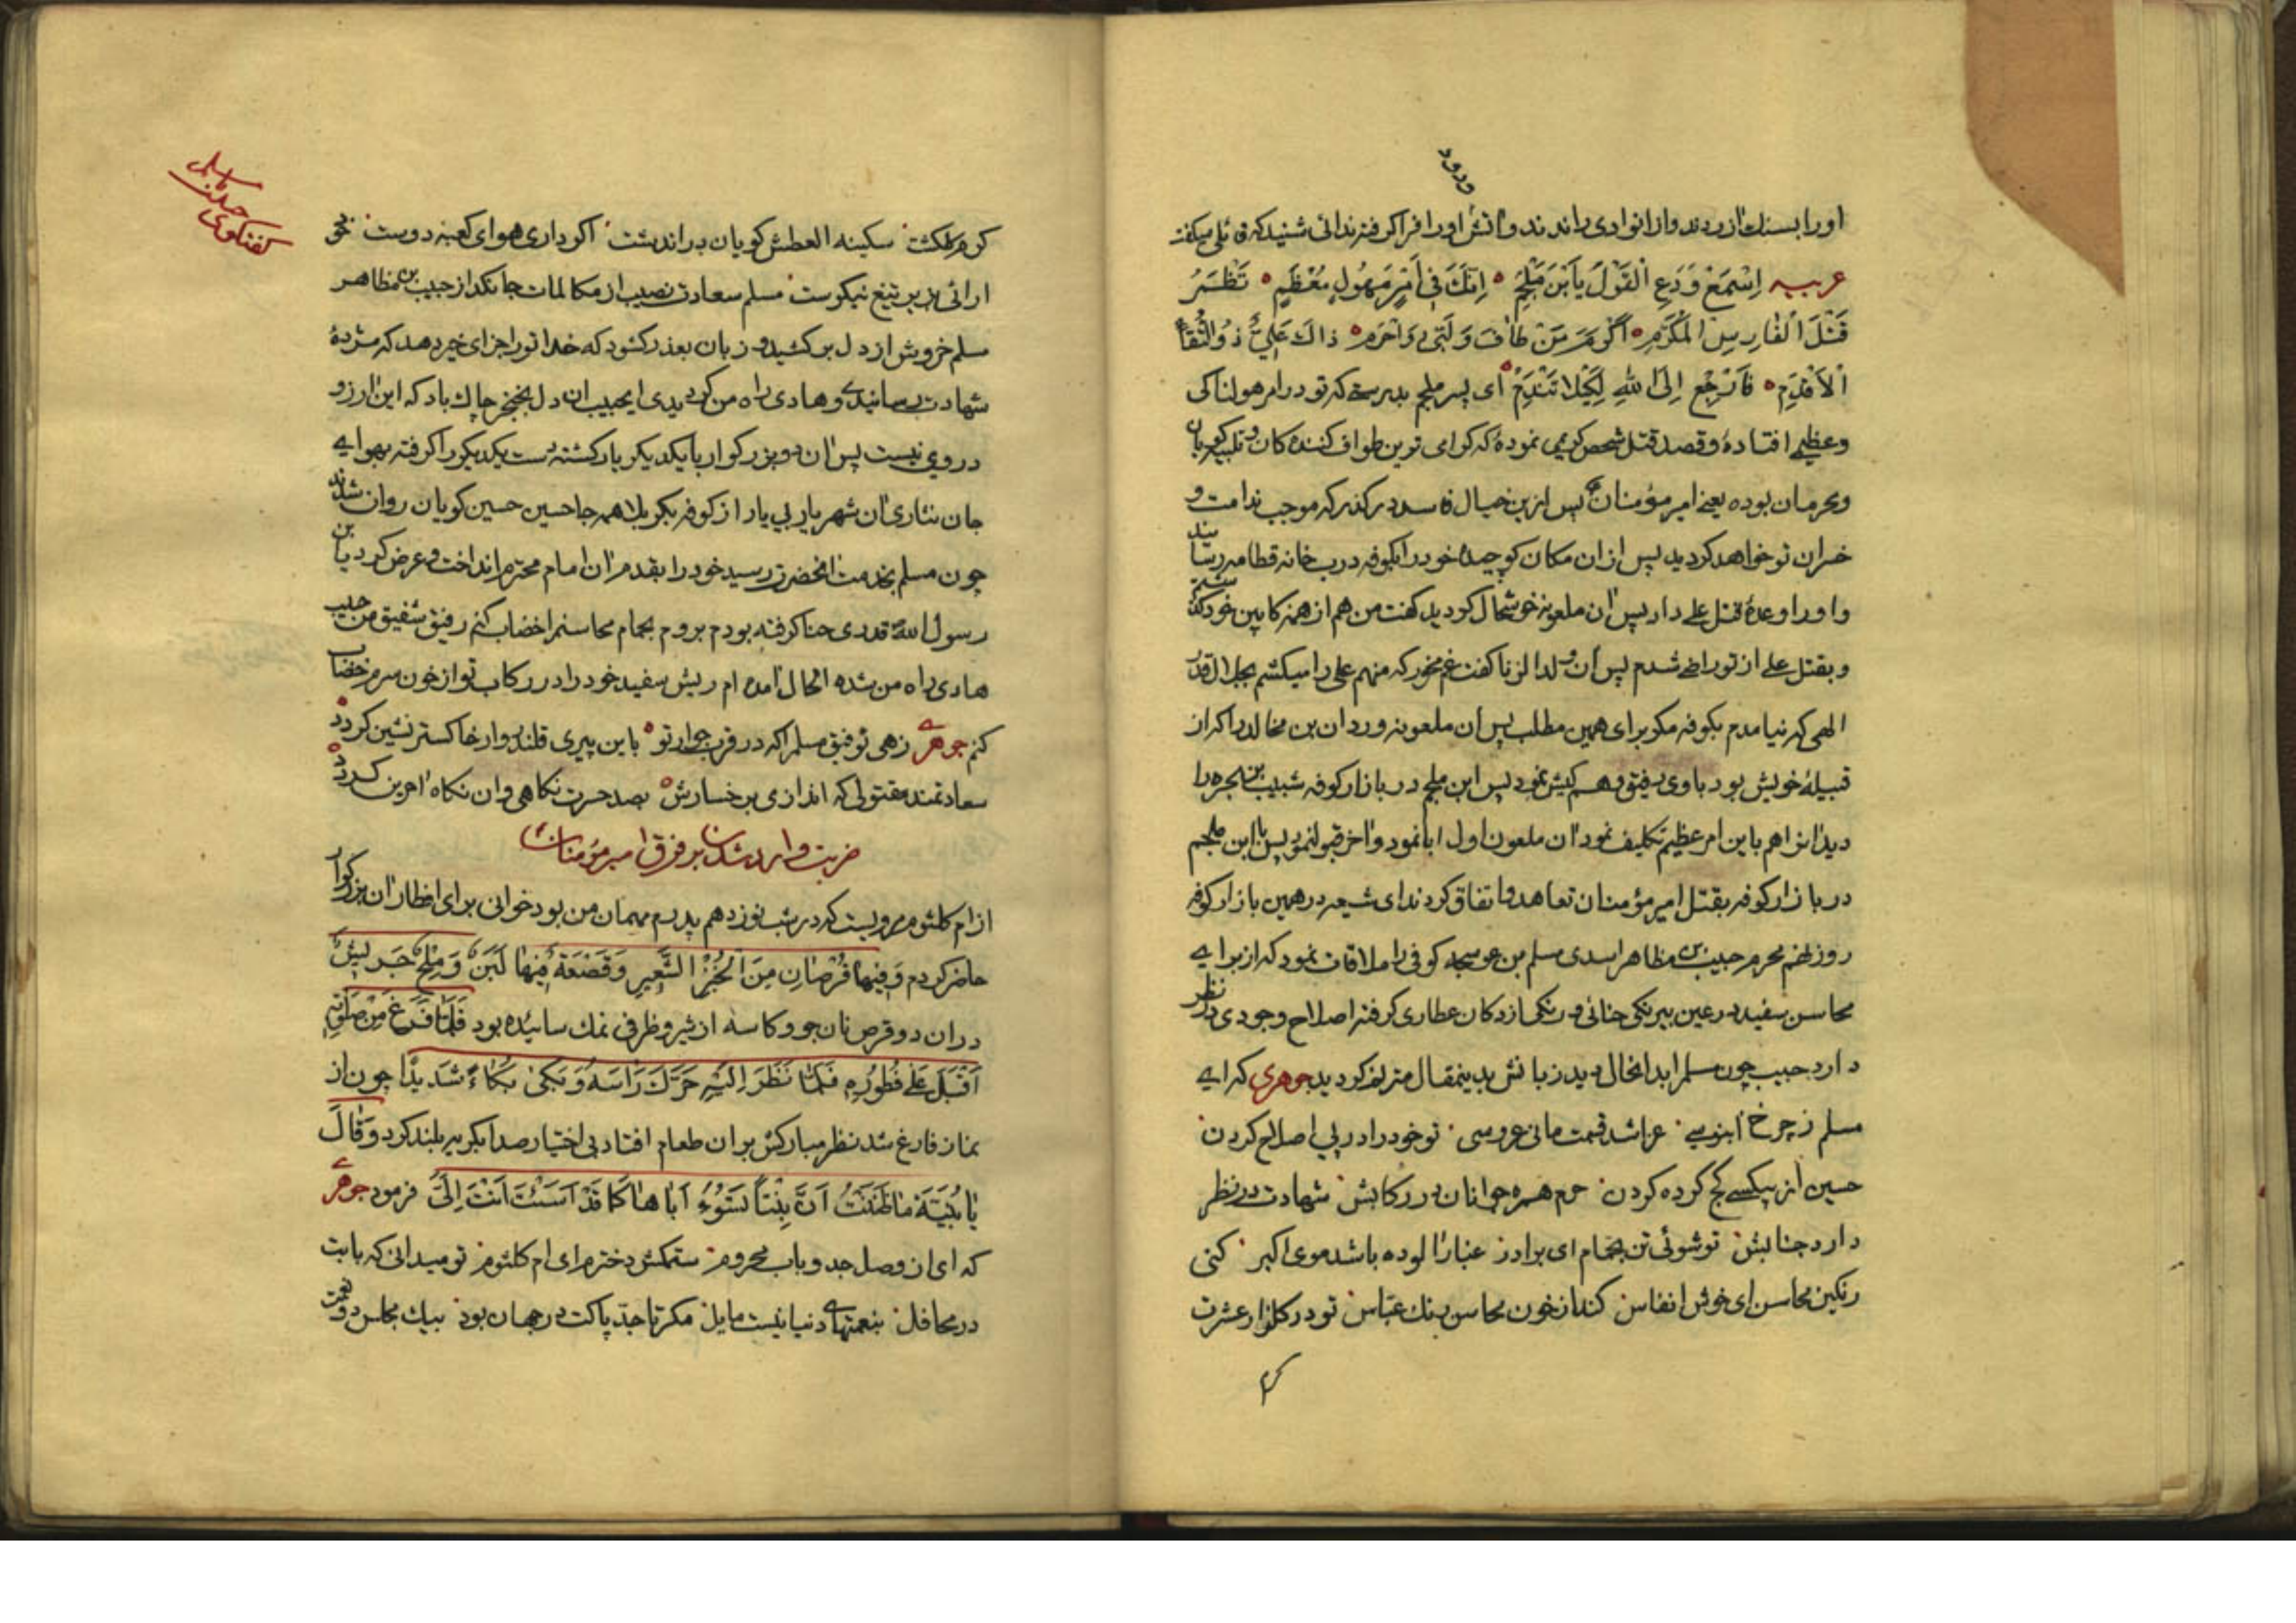 ورود
اورا بسنك ازردند واز انوادی راندند واتش اورا فرا کرفته ندائی شنید که قائلی میکفت
عربیه اِسْمَعْ وَدَعِ القَوْلَ یَابْنَ مُلْجَمِ اِنَّكَ فی اَمْرٍ مَهُولٍ مُعْظَمِ تُظْمِرُ
قَتْلَ الفارِسِ المُکَرَّمِ اَکْرَمَ مَنْ طافَ وَلَبّی وَاحْرَم ذاكَ عَلِیٌّ ذُوالتُّقاءِ
الاَقْدَمِ فَارْجِع اِلَی اللهِ لِکَیْلا تَنْدَمْ ای پسر ملجم بدرستیکه تو در امر هولناکی
وعظیمی افتادهٔ وقصد قتل شخص کریمی نمودهٔ که کرامی ترین طواف کنندهکان وتلبیه کویان
ومحرمان بوده یعنی امیر مؤمنان پس ازین خیال فاسد درکذر که موجب ندامت و
خسران تو خواهد کردید پس ازان مکان کوچیده خود را بکوفه درب خانه قطامه رسانید
واورا وعدهٔ قتل علی داد پس ان ملعونه خوشحال کردید کفت من هم از مهر کابین خود کذشتم
وبقتل علی از تو راضی شدم پس ان ولدالزنا کفت غم مخور که منهم علی را میکشم بجلال قدر
الهی که نیامدم بکوفه مکر برای همین مطلب پس ان ملعونه وردان بن مخالد را که از
قبیلهٔ خویش بود باوی رفیق وهم کیش نمود پس ابن ملجم در بازار کوفه شبیب بن بجره را
دید انرا هم باین امر عظیم تکلیف نمود ان ملعون اول ابا نمود واخر قبول نمود پس با ابن ملجم
در بازار کوفه بقتل امیر مؤمنان تعاهد واتفاق کردند ای شیعه در همین بازار کوفه
روز نهم محرم حبیب بن مظاهر اسدی مسلم بن عوسجه کوفی را ملاقات نمود که از برای
محاسن سفید در عین بیرنکی حنائی ورنکی از دکان عطاری کرفته اصلاح وجودی در نظر
دارد حبیب چون مسلم را بدانحال دید زبانش بدینمقال مترنم کردید جوهری که ای
مسلم ز چرخ ابنوسی عزا شد قسمت مانی عروسی تو خود را در پی اصلاح کردن
حسین از بیکسی کج کرده کردن حرم همره جوانان در رکابش شهادت در نظر
دارد جنابش تو شوئی تن بحمام ای برادر غبار الوده باشد موی اکبر کنی
رنکین محاسن ای خوش انفاس کند از خون محاسن رنك عباس تو در کلزار عشرت
کرم
کفتکوی حبیب مسلم
کرم کلکشت سکینه العطش کویان در اندشت اکر داری هوای کعبه دوست
ارائی بزیر تیغ نیکوست مسلم سعادت نصیب از مکالمات جانکداز حبیب بن مظاهر
مسلم خروش از دل برکشید و زبان بعذر کشود که خدا تورا جزای خیر دهد که مژدهٔ
شهادت رسانیدی وهادی راه من کردیدی ایحبیب ان دل بخنجر چاك باد که این ارزو
در وی نیست پس ان دو بزرکوار با یکدیکر یار کشته دست یکدیکر را کرفته بهوای
جان نثاری ان شهریار بی یار از کوفه بکربلا همه جا حسین حسین کویان روان شدند
چون مسلم بخدمت انحضرت رسید خود را بقدم ان امام محترم انداخت وعرض کرد یابن
رسول الله قدری حنا کرفته بودم بروم بحمام محاسنم را خضاب کنم رفیق شفیق من حبیب
هادی راه من شده الحال امده ام ریش سفید خود را در رکاب تو از خون سرم خضاب
کنم جوهری زهی توفیق مسلم را که در قرب جوار تو باین پیری قلندروار خاکستر نشین کردد
سعادتمند مقتولی که اندازی برخسارش بصد حسرت نکاهی وان نکاه اخرین کردد
ضربت وارد شدن بر فرق امیر مؤمنان
از ام کلثوم مرویست که در شب نوزدهم پدرم مهمان من بود خوانی برای افطار ان بزرکوار
حاضر کردم وَفیها قُرْصانِ مِنَ الخُبْزِ الشَّعیرِ وَقَصْعَةٌ فیها لَبَنٌ وَمِلْحٌ جَریشٌ
دران دو قرص نان جو وکاسه از شیر وظرفی نمك سائیده بود فَلَمّا فَرَغَ مِنْ صَلوتِهِ
اَقْبَلَ عَلی فُطُورِهِ فَلَمّا نَظَرَ اِلَیْهِ حَرَّكَ رَاسَهُ وَبَکی بُکاءً شَدیدًا چون از
نماز فارغ شد نظر مبارکش بران طعام افتاد بی اختیار صدا بکریه بلند کرد وَقالَ
یا بُنَیَّة ما ظَنَنْتُ اَنَّ بِنْتاً تَسُؤُ اَباها کَما قَدْ اَسَئْتَ اَنْتَ اِلَیَّ فرمود جوهری
که ای از وصل جد وباب محروم ستمکش دخترم ای ام کلثوم تو میدانی که بابت
در محافل بنعمتهای دنیا نیست مایل مکر تا جد پاکت در جهان بود بیك مجلس دو نعمت